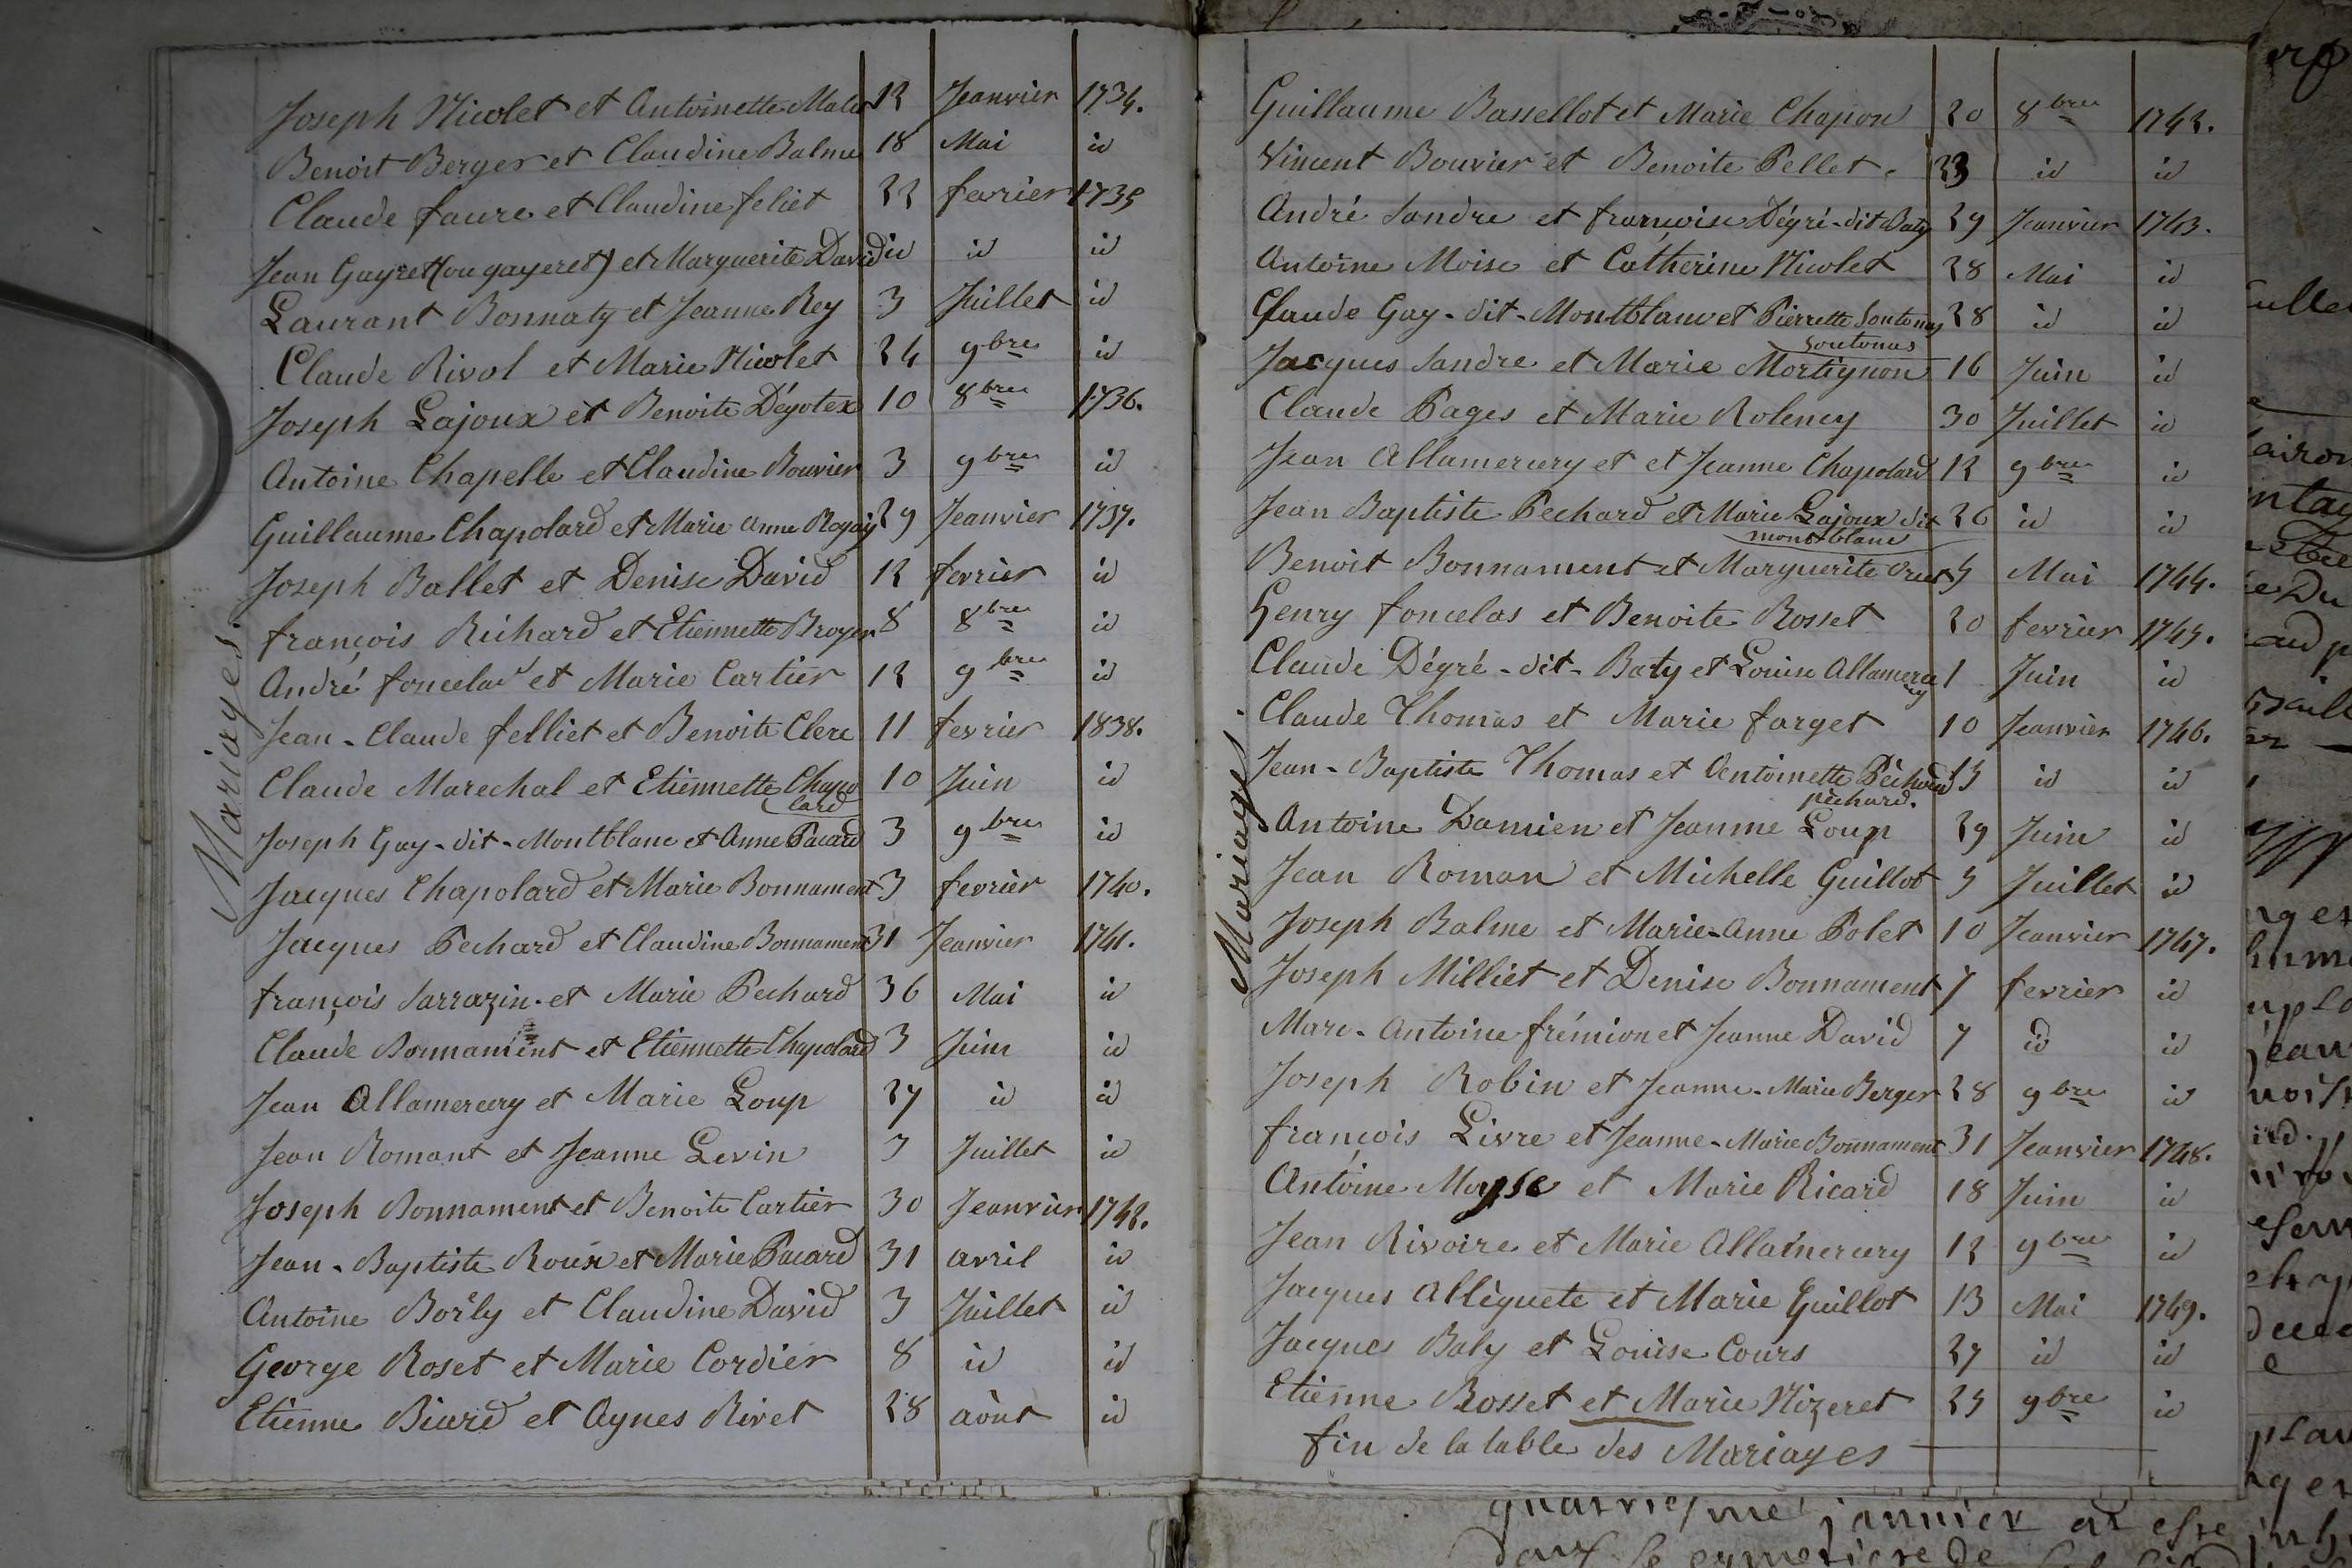 Mariages.
Joseph Nicolet et Antoinette Mater 12 Jeanvier 1734.
Benoit Berger et Claudine Balme 18 Mai id
Claude faure et Claudine feliet 22 fevrier 1735
Jean Gayret (ou gayeret) et Marguerite David id id id
Laurant Bonnaty et Jeanne Rey 3 Juillet id
Claude Rivol et Marie Nicolet 24 9bre id
Joseph Lajoux et Benoite Dégotex 10 8bre 1736.
Antoine Chapelle et Claudine Bouvier 3 9bre id
Guillaume Chapolard et Marie Anne 29 Jeanvier 1737.
Joseph Ballet et Denise David 12 fevrier id
françois Richard et Etiennette Broyer 8 8bre id
André foncelas et Marie Cartier 12 9bre id
Jean-Claude felliet et Benoite Clerc 11 fevrier 1838.
Claude Marechal et Etiennette Chapo 10 Juin id
lard
Joseph Gay-dit-Montblanc et Anne Pacard 3 9bre id
Jacques Chapolard et Marie Bonnament 3 fevrier 1740.
Jacques Pechard et Claudine Bonnament 31 Jeanvier 1741.
françois Sarrazin et Marie Pechard 36 Mai id
Claude Bonnament et Etiennette Chapolard 3 Juin id
Jean Allamercery et Marie Loup 27 id id
Jean Romant et Jeanne Levin 3 Juillet id
Joseph Bonnament et Benoite Cartier 30 Jeanvier 1742.
Jean-Baptiste Roux et Marie Pacard 31 avril id
Antoine Borly et Claudine David 3 Juillet id
George Roset et Marie Cordier 8 id id
Etienne Biard et Agnes Rivet 28 août id
Mariages.
Guillaume Bassellot et Marie Chapon 20 8bre 1742.
Vincent Bouvier et Benoite Pellet. 23 id id
André Sandre et françoise Dégré-dit Baty 29 Jeanvier 1743.
Antoine Moise et Catherine Nicolet 28 Mai id
Claude Gay-dit-Montblanc et Pierrette Soutonas 28 id id
soutonas
Jacques Sandre et Marie Mortignon 16 Juin id
Claude Pages et Marie Rolency 30 Juillet id
Jean Allamercery et et Jeanne Chapolard 12 9bre id
Jean Baptiste Pechard et Marie Lajoux dit 26 id id
montblanc
Benoit Bonnament et Marguerite 5 Mai 1744.
Henry foncelas et Benoite Rosset 20 fevrier 1745.
Claude Dégré-dit-Baty et Louise Allamerce 1 Juin id
ry
Claude Thomas et Marie farget 10 Jeanvier 1746.
Jean-Baptiste Thomas et Antoinette Péchard 13 id id
péchard.
Antoine Damien et Jeanne Loup 29 Juin id
Jean Roman et Michelle Guillot 5 Juillet id
Joseph Balme et Marie-Anne Polet 10 Jeanvier 1747.
Joseph Milliet et Denise Bonnament 7 fevrier id
Marc-Antoine frémion et Jeanne David 7 id id
Joseph Robin et Jeanne-Marie Berger 28 9bre id
françois Livre et Jeanne-Marie Bonnament 31 Jeanvier 1748.
Antoine Moyse et Marie Ricard 18 Juin id
Jean Rivoire et Marie Allamercery 12 9bre id
Jacques Alléguete et Marie Guillot 13 Mai 1749.
Jacques Baly et Louise Cours 27 id id
Etienne Rosset et Marie Nizeret 25 9bre id
fin de la table des Mariages